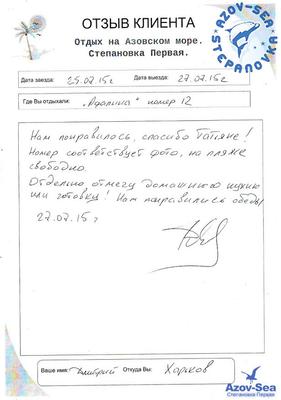 ОТЗЫВ КЛИЕНТА
Отдых на Азовском море.
Степановка Первая.
AZOV-SEA
STEPANOVKA
Дата заезда: 25.07.15г Дата выезда: 27.07.15г
Где Вы отдыхали: "Афалина" номер 12
Нам понравилось, спасибо Татьяне!
Номер соответствует фото, на пляже
свободно.
Отдельно, отмечу домашнюю кухню
или готовку! Нам понравились обеды
27.07.15г
Ваше имя: Дмитрий Откуда Вы: Харков
Azov-Sea
Степановка Первая